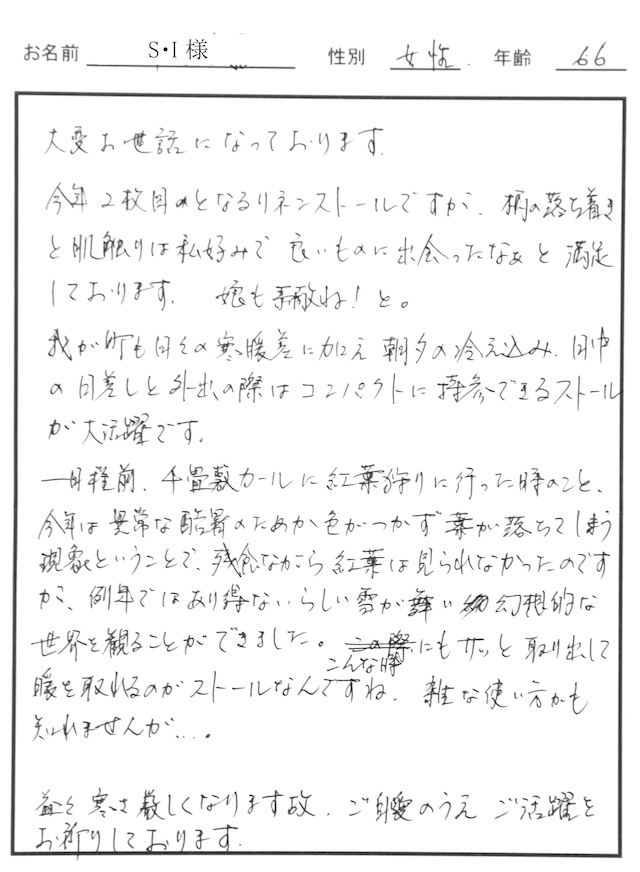 お名前 S・I様 性別 女性. 年齢 66
大変お世話になっております.
今年2枚目のとなるリネンストールですが、柄の落ち着き
と肌触りは私好みで良いものに出会ったなぁと満足
しております. 娘も素敵ね!と。
我が町も日々の寒暖差に加え朝夕の冷え込み、日中
の日差しと外出の際はコンパクトに持参できるストール
が大活躍です。
一日程前、千畳敷カールに紅葉狩りに行った時のこと、
今年は異常な酷暑のためか色がつかず葉が落ちてしまう
現象ということで、残念ながら紅葉は見られなかったのです
が、例年ではあり得ないらしい雪が舞い幻想的な
世界を観ることができました。こんな時にもサッと取り出して
暖を取れるのがストールなんですね. 雑な使い方かも
知れませんが....。
益々寒さ厳しくなります故、ご自愛のうえご活躍を
お祈りしております.